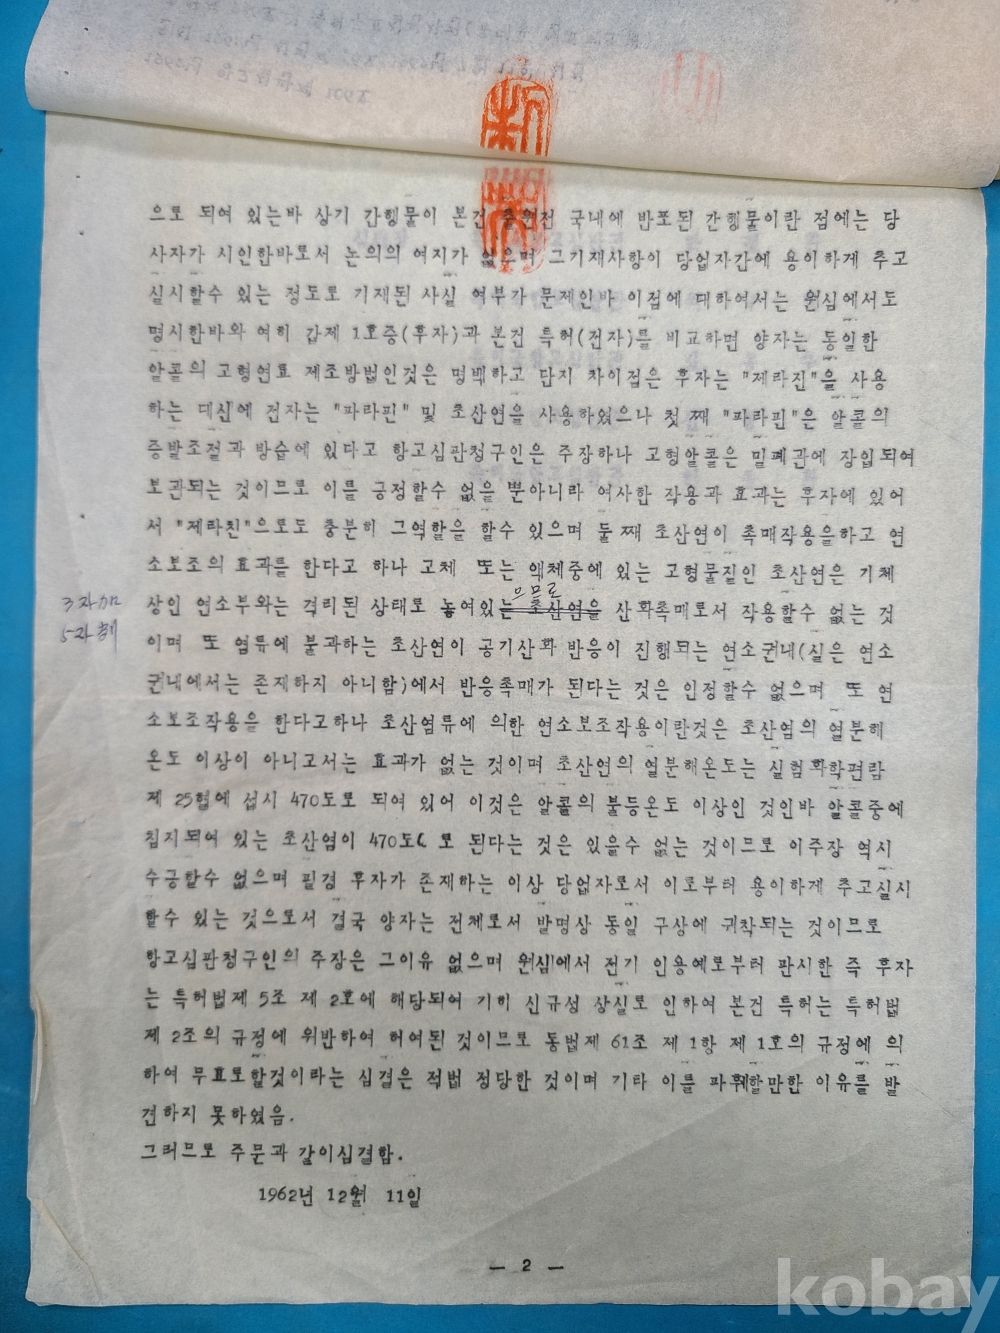 으로 되여 있는바 상기 간행물이 본건 출원전 국내에 반포된 간행물이란 점에는 당
사자가 시인한바로서 논의의 여지가 없으며 그기재사항이 당업자간에 용이하게 추고
실시할수 있는 정도로 기재된 사실 여부가 문제인바 이점에 대하여서는 원심에서도
명시한바와 여히 갑제 1호증(후자)과 본건 특허(전자)를 비교하면 양자는 동일한
알콜의 고형연료 제조방법인것은 명백하고 단지 차이점은 후자는 "제라진"을 사용
하는 대신에 전자는 "파라핀" 및 초산연을 사용하였으나 첫째 "파라핀"은 알콜의
증발조절과 방습에 있다고 항고심판청구인은 주장하나 고형알콜은 밀폐관에 장입되여
보관되는 것이므로 이를 긍정할수 없을 뿐아니라 여사한 작용과 효과는 후자에 있어
서 "제라친"으로도 충분히 그역할을 할수 있으며 둘째 초산연이 촉매작용을하고 연
소보조의 효과를 한다고 하나 고체 또는 액체중에 있는 고형물질인 초산연은 기체
으므로
3자加 상인 연소부와는 격리된 상태로 놓여있는 초산연을 산화촉매로서 작용할수 없는 것
5자 이며 또 염류에 불과하는 초산연이 공기산화 반응이 진행되는 연소권내(실은 연소
권내에서는 존재하지 아니함)에서 반응촉매가 된다는 것은 인정할수 없으며 또 연
소보조작용을 한다고하나 초산염류에 의한 연소보조작용이란것은 초산염의 열분해
온도 이상이 아니고서는 효과가 없는 것이며 초산연의 열분해온도는 실험화학편람
제 25협에 섭시 470도로 되여 있어 이것은 알콜의 불등온도 이상인 것인바 알콜중에
침지되여 있는 초산염이 470도C 로 된다는 것은 있을수 없는 것이므로 이주장 역시
수긍할수 없으며 필경 후자가 존재하는 이상 당업자로서 이로부터 용이하게 추고실시
할수 있는 것으로서 결국 양자는 전체로서 발명상 동일 구상에 귀착되는 것이므로
항고심판청구인의 주장은 그이유 없으며 원심에서 전기 인용예로부터 판시한 즉 후자
는 특허법제 5조 제 2호에 해당되어 기히 신규성 상실로 인하여 본건 특허는 특허법
제 2조의 규정에 위반하여 허여된 것이므로 동법제 61조 제 1항 제 1호의 규정에 의
하여 무효로할것이라는 심결은 적법 정당한 것이며 기타 이를 파훼할만한 이유를 발
견하지 못하였음.
그러므로 주문과 같이심결함.
1962년 12월 11일
— 2 —
kobay